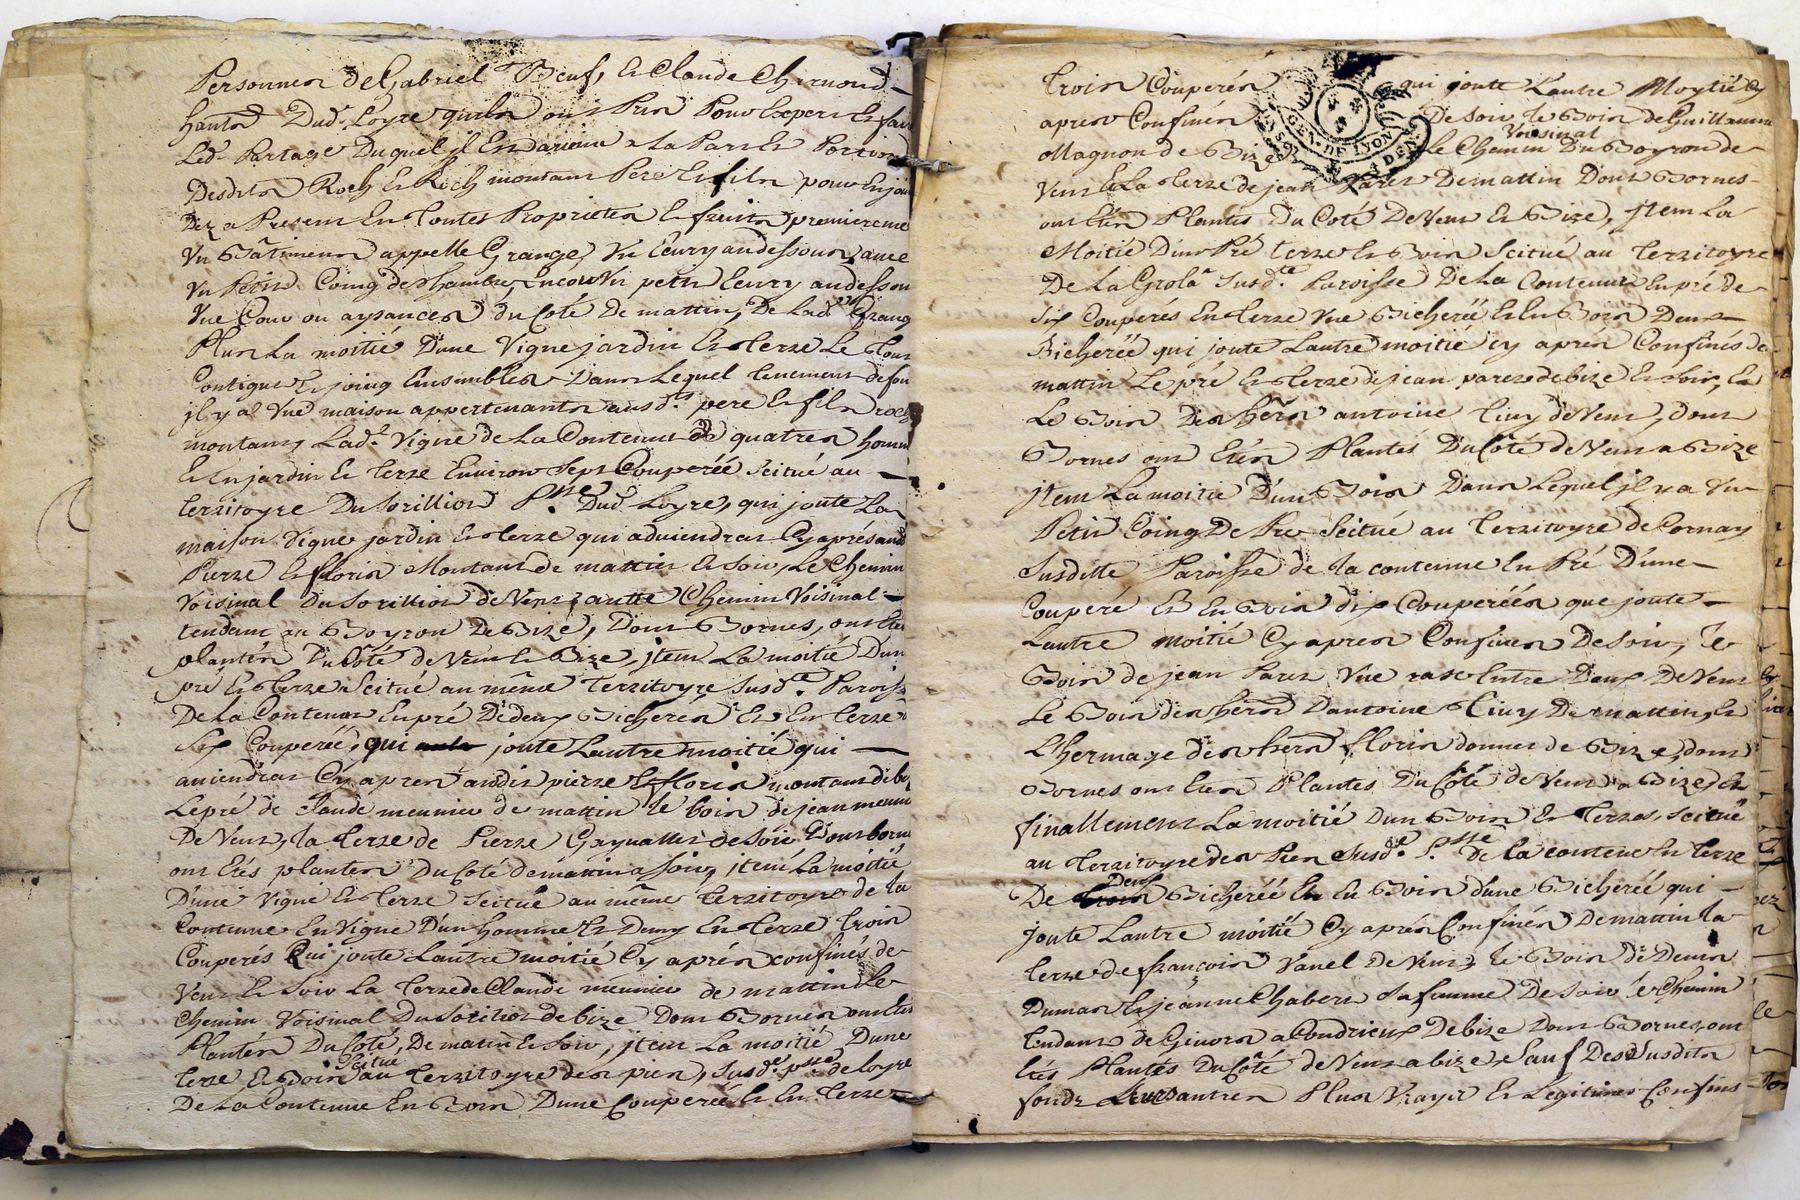 Personnes de Gabriel Beuf, et Claude Charnond
hants Dud. Loyre quils ont Pris Pour Expert et fai
Led. Partage Duquel il Est avenu a La Part et Portion
Desdits Roch et Roch montant Pere et fils pour En joui
Dez a Present En toutes Proprietes et fruits, premiereme
Un Bâtiment appelle Grange, Un Ecury au dessous, avec
Un Petit Coing de Chambre, Encore Un petit Ecury au dessou
Une Cour ou aysances du Coté De mattin, De Lad. Grang
Plus La moitié D'une Vigne jardin et terre Le tout
Contigus et joing Ensembles Dans Lequel tenement de fon
il y al Une maison appertenants ausd.ts pere et fils roch
montant, Lad.e Vigne de La Contenue de quatres homm
et En jardin et terre Environ Sept Couperée Scitué au
territoyre Du Sorillion P.sse Dud. Loyre, qui joute La
maison Vigne jardin et terre qui adviendrat Cy aprés aud
Pierre et floris Montant de mattin et Soir, Le Chemin
Voisinal Du Sorillion de Vent, autre Chemin Voisinal
tendant au Boyron De Bize, Dont Bornes, ont Eté
plantés Du Coté de Vent et Bize, jtem La moitié D'un
pré et terre Scitué au même Territoyre Susd.te Paroiss
De La Contenue En pré De deux Bicherée et En terre
Six Couperée, qui joute Lautre moitié qui
aviendrat Cy apres ausdit pierre et floris montant de bi
Le pré de Claude meunier de mattin le bois de jean meuni
De Vent, la terre de Pierre De Soir Dont borne
ont Etés plantes Du Coté de mattin a Soir, jtem La moitié
D'une Vigne et terre Scitué au même territoyre de la
Contenue En Vigne D'un homme et Demy En terre trois
Couperés Qui joute Lautre moitié Cy aprés confinés de
Vent et Soir La terre de Claude meunier de mattin Le
Chemin Voisinal Du Sorilion de bize Dont Bornes ont Eté
Plantés Du Coté, De matin et Soir, jtem La moitié D'une
terre et Bois Scitué au territoyre des pies, Susd.e p.sse de loyre
De La Contenue En Bois D'une Couperée et En terre
trois Couperés qui joute Lautre Moytié Cy
apres Confinés De Soir le Bois de Guillaume
Magnon de Bize Le Chemin Voisinal Du Boyron de
Vent et La terre de jean Parez De mattin Dont Bornes
ont Etés Plantés Du Coté De Vent et Bize, jtem La
Moitié D'un Pré terre et Bois Scitué au territoyre
De La Grola Susd.te Paroisse De La Contenue En pré De
Six Couperés En terre Une Bicherée et En Bois Deux
Bicherée qui joute Lautre moitié cy aprés Confinés de
mattin Le pré et terre de jean parez de bize et Soir, et
Le Bois Des hers antoine Civy de Vent, dont
Bornes ont Etés Plantes Du Coté de Vent a Bize
jtem La moitié D'un Bois Dans Lequel il y a Un
Petit Coing De Pré Scitué au territoyre de Cornay
Susditte Paroisse de la contenue En Pré D'une
Couperé Et En Bois dix Couperées que joute
Lautre moitié Cy apres Confines De Soir, le
Bois de jean Parez Une rase Entre Deux De Vent
Le Bois des hers D'antoine Civy De mattin, Et
L'hermage des hers floris donnet de Bize, dont
Bornes ont Etés Plantes Du Coté de Vent a Bize, Et
finallement La moitié D'un Bois Et Terres, Scitué
au territoyre des Pies Susd.e P.sse de la contenue En terre
De Deux Bicherée Et En Bois d'une Bicherée qui
joute Lautre moitié Cy aprés Confinés De mattin la
terre de françois Vanel De Vent, le Bois de Denis
Dumas Et jeanne Chabert Sa femme De Soir le Chemin
tendant de Givors a Condrieux De bize Dont Bornes, ont
Etés Plantés Du Coté de Vent a bize, Sauf Des Susdits
fonds Leurs autres Plus Vrays Et Legitimes Confins
GEN. DE LYON
4 DEN.